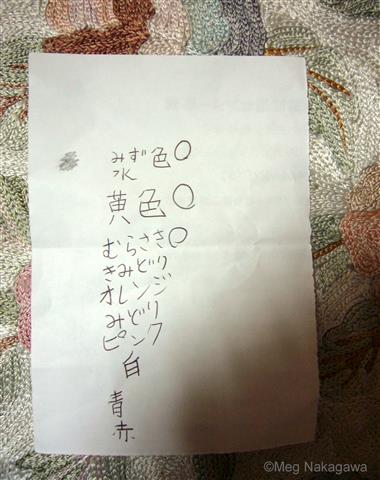 みず
水色○
黄色○
むらさき○
きみどり
オレンジ
みどり
ピンク
白
青
赤
©Meg Nakagawa